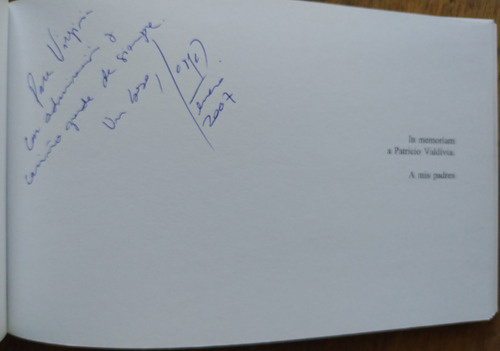 Para Virginia
con admiración y
cariño grande de siempre.
Un beso,
enero
2007
In memoriam
a Patricio Valdivia.
A mis padres